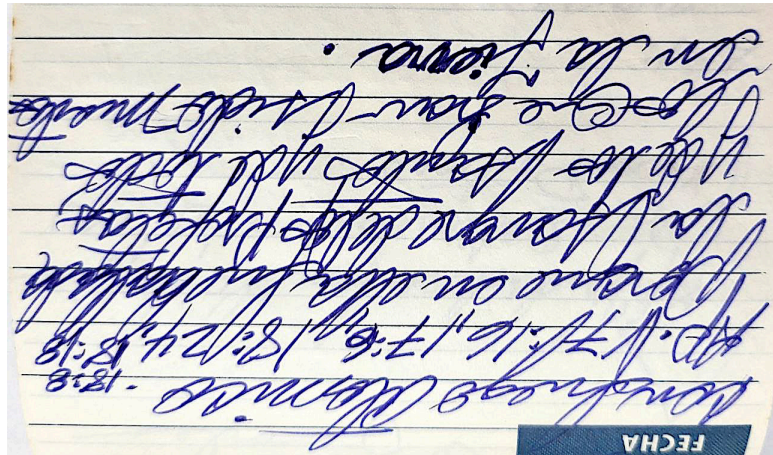 FECHA
con fuego Atomico 18:8
Ap. 17:16, 17:6, 18:24, 18:18
Porque en ella fue hallada
la Sangre de los Profetas
y de los Santos y de todos
los que han sido muertos
en la Tierra.